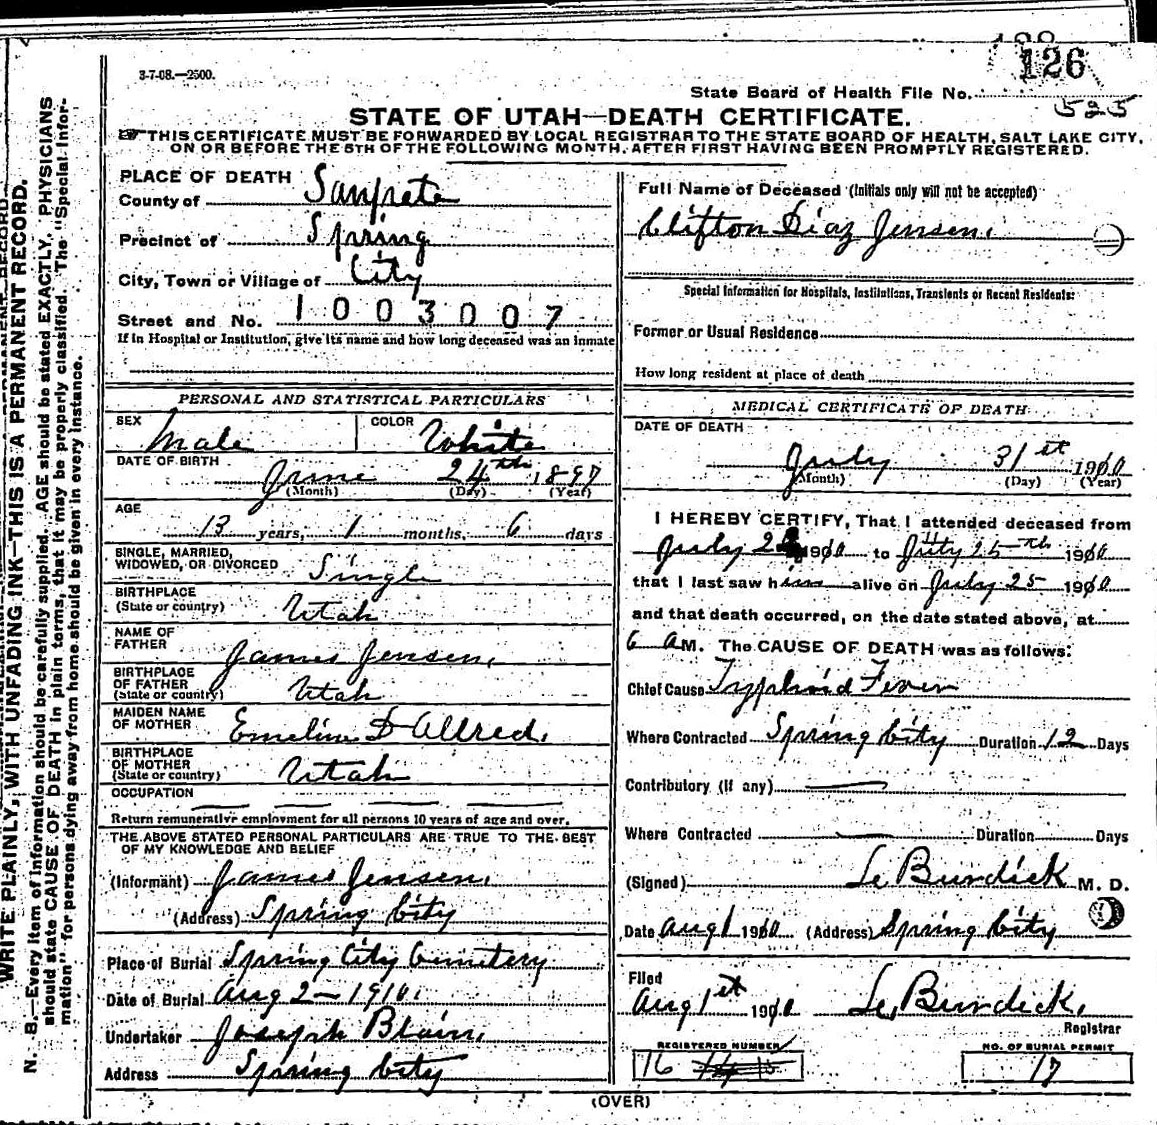 3-7-08.—2500.
126
State Board of Health File No.
525
STATE OF UTAH—DEATH CERTIFICATE.
THIS CERTIFICATE MUST BE FORWARDED BY LOCAL REGISTRAR TO THE STATE BOARD OF HEALTH, SALT LAKE CITY,
ON OR BEFORE THE 5TH OF THE FOLLOWING MONTH, AFTER FIRST HAVING BEEN PROMPTLY REGISTERED.
WRITE PLAINLY, WITH UNFADING INK—THIS IS A PERMANENT RECORD.
N. B.—Every item of information should be carefully supplied. AGE should be stated EXACTLY. PHYSICIANS
should state CAUSE OF DEATH in plain terms, that it may be properly classified. The "Special Infor-
mation" for persons dying away from home should be given in every instance.
PLACE OF DEATH
County of Sanpete
Precinct of Spring
City, Town or Village of City
Street and No. 1003007
If in Hospital or Institution, give its name and how long deceased was an inmate
PERSONAL AND STATISTICAL PARTICULARS
SEX Male COLOR White
DATE OF BIRTH June 24th 1897
(Month) (Day) (Year)
AGE
13 years, 1 months, 6 days
SINGLE, MARRIED,
WIDOWED, OR DIVORCED Single
BIRTHPLACE
(State or country) Utah
NAME OF
FATHER James Jensen.
BIRTHPLACE
OF FATHER
(State or country) Utah
MAIDEN NAME
OF MOTHER Emeline D Allred.
BIRTHPLACE
OF MOTHER
(State or country) Utah
OCCUPATION
Return remunerative employment for all persons 10 years of age and over.
THE ABOVE STATED PERSONAL PARTICULARS ARE TRUE TO THE BEST
OF MY KNOWLEDGE AND BELIEF
(Informant) James Jensen.
(Address) Spring City
Place of Burial Spring City Cemetery
Date of Burial Aug 2—1910.
Undertaker Joseph Blain.
Address Spring City
Full Name of Deceased (Initials only will not be accepted)
Clifton Diaz Jensen.
Special Information for Hospitals, Institutions, Transients or Recent Residents:
Former or Usual Residence
How long resident at place of death
MEDICAL CERTIFICATE OF DEATH
DATE OF DEATH
July 31st 1910
(Month) (Day) (Year)
I HEREBY CERTIFY, That I attended deceased from
July 1910 to July 25th 1910
that I last saw him alive on July 25 1910
and that death occurred, on the date stated above, at
6 AM. The CAUSE OF DEATH was as follows:
Chief Cause Typhoid Fever
Where Contracted Spring City Duration 12 Days
Contributory (if any)
Where Contracted Duration Days
(Signed) Le Burdick M. D.
Date Aug 1 1910 (Address) Spring City
Filed
Aug 1st 1910 Le Burdick.
Registrar
REGISTERED NUMBER
16
NO. OF BURIAL PERMIT
17
(OVER)